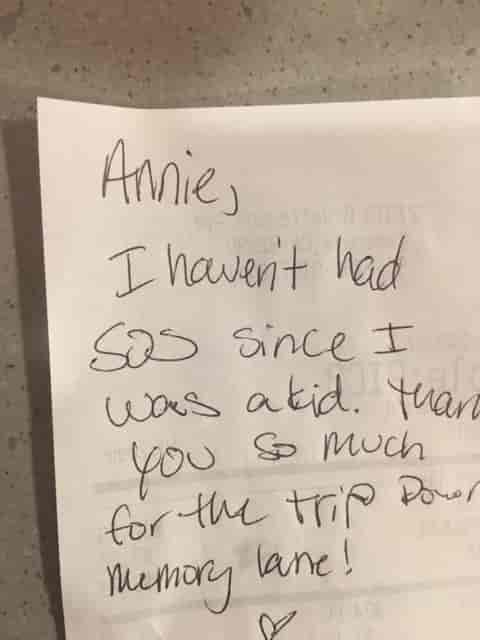 Annie,
I haven't had
SOS since I
was a kid. Than
you so much
for the trip Down
memory lane!